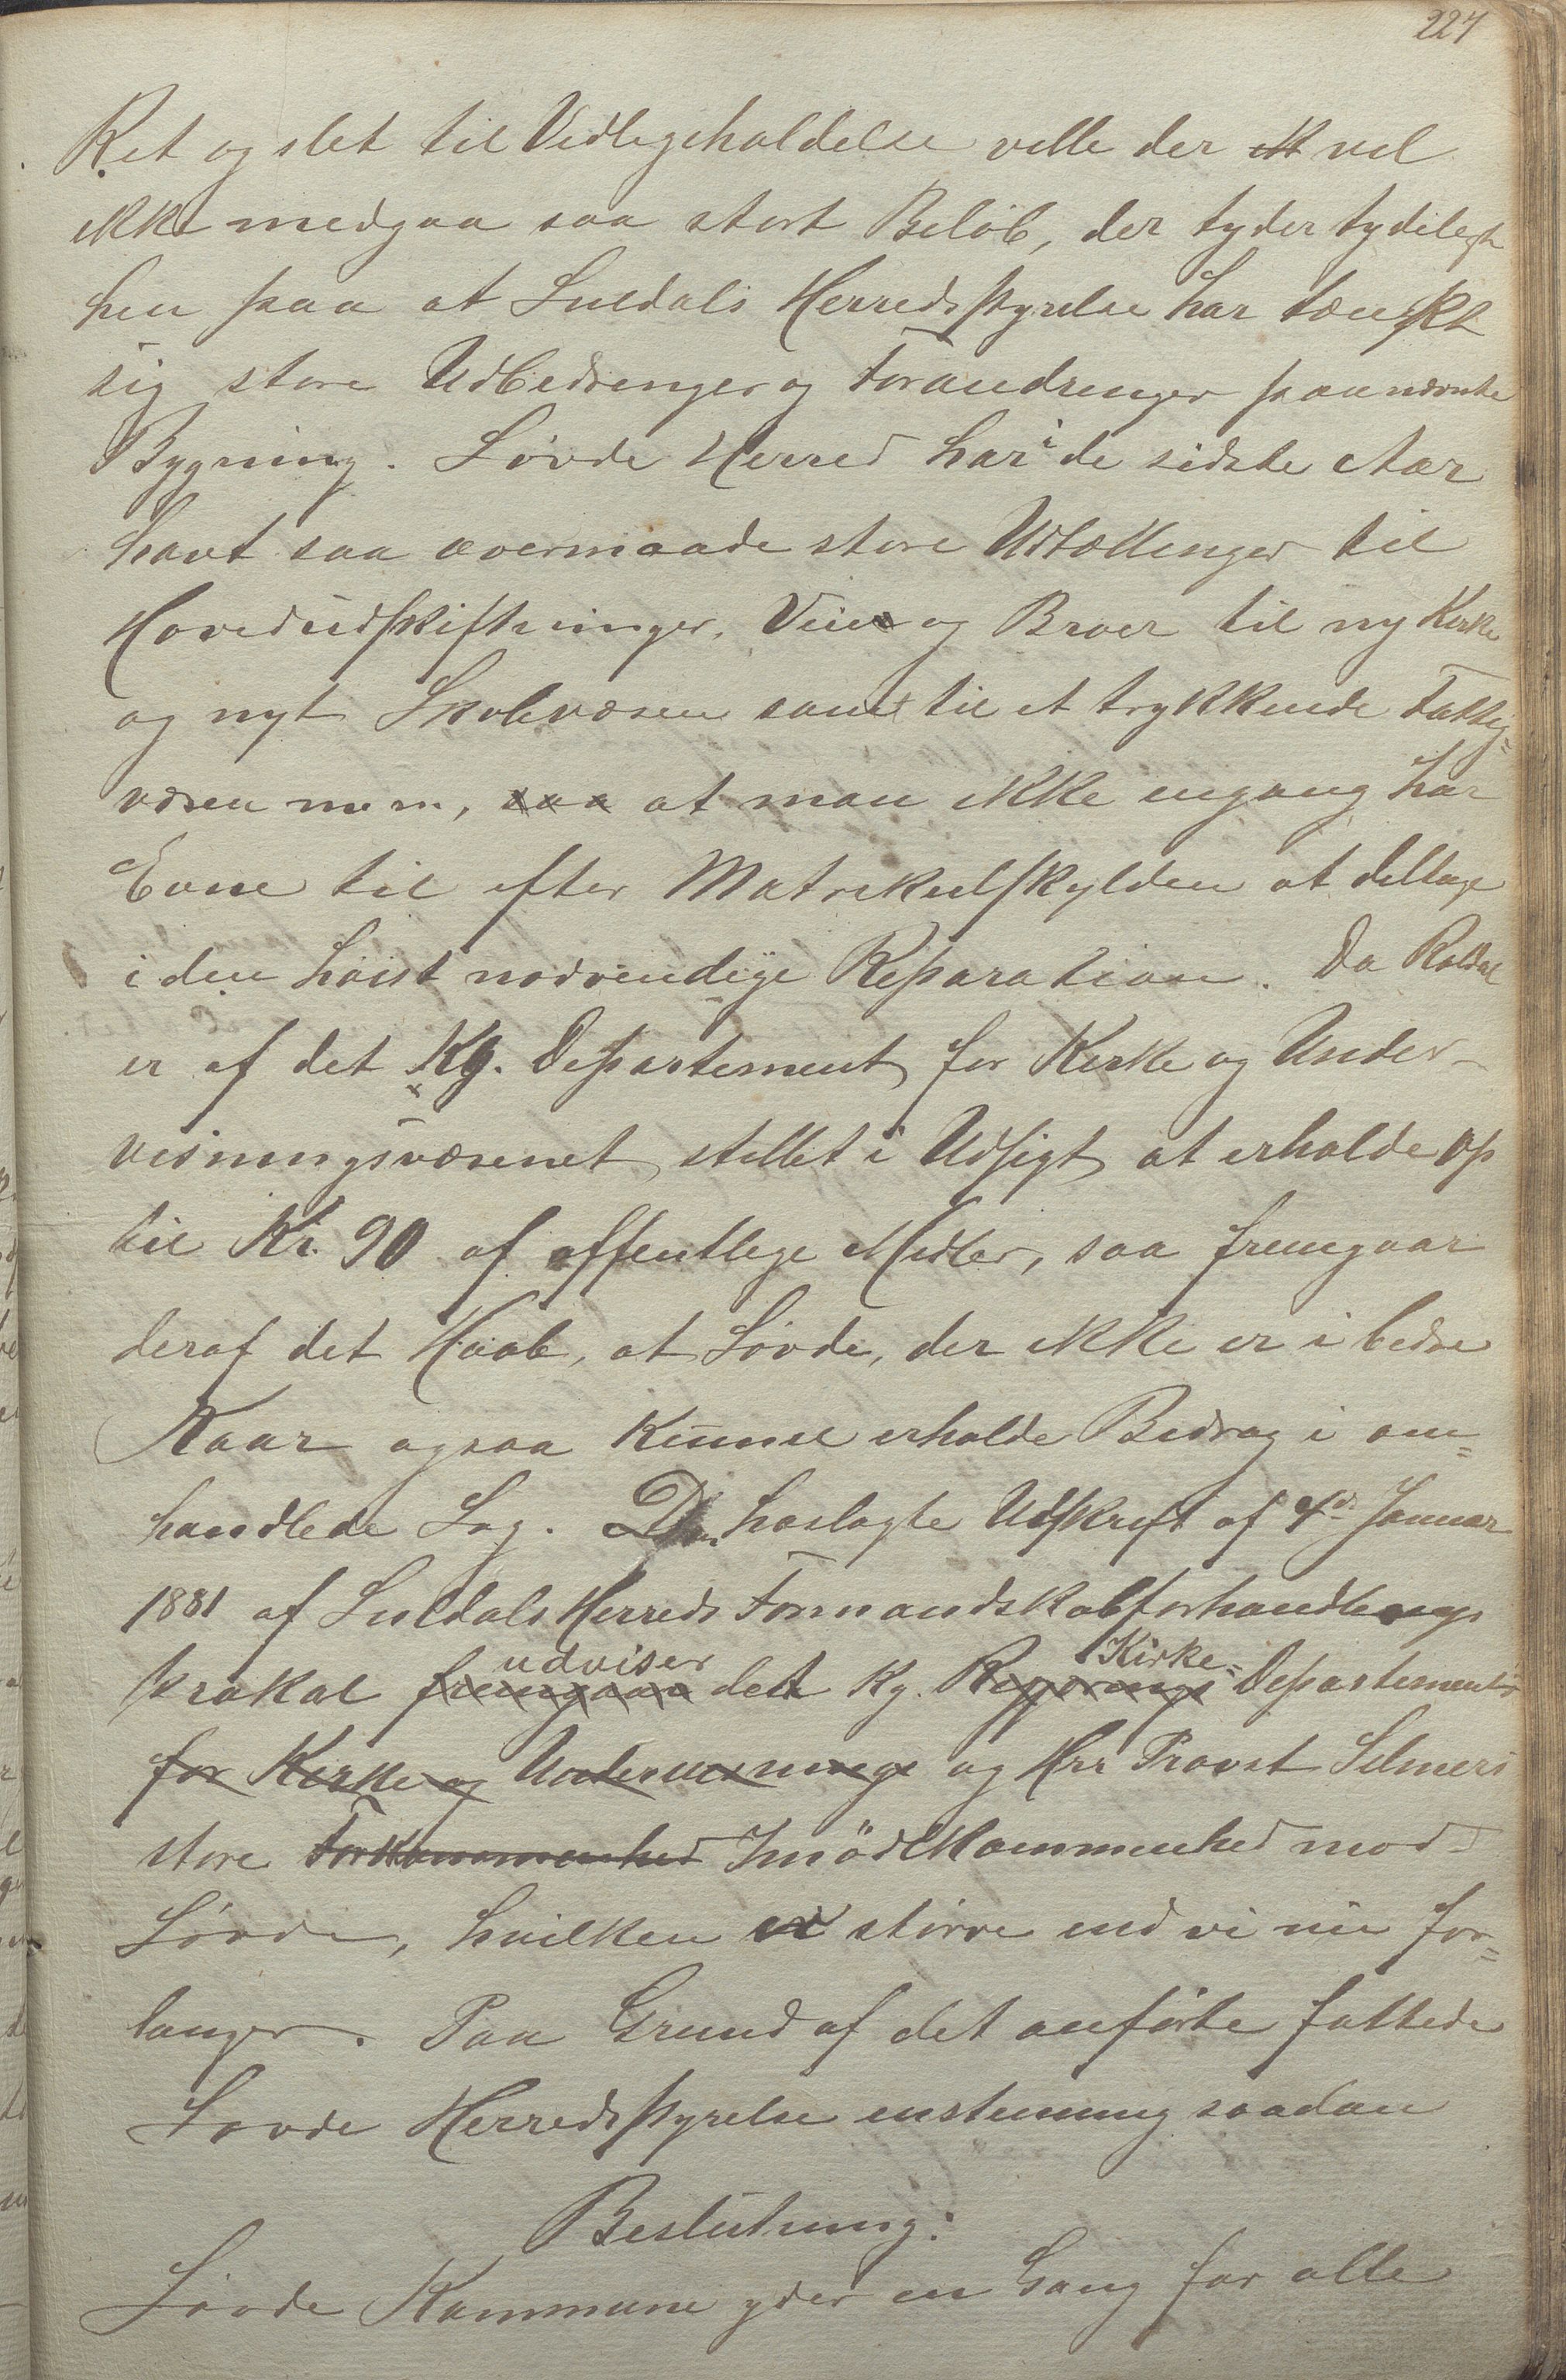 227
Ret og slet til Vedligeholdelse ville der vel
ikke medgaa saa stort Beløb, der tyder tydeligt
hen paa at Suldals Herredsstyrelse har tænkt
sig store Udbedringer og Forandringer paa nævnte
Bygning. Søvde Herred har i de sidste Aar
havt saa overmaade store Udtællinger til
Hovedudskiftninger, Veie og Broer til ny Kirke
og nyt Skolevæsen samt til et trykkende Fattig=
væsen m. m., saa at man ikke engang har
Evne til efter Matrikulskylden at deltage
i den høist nødvendige Reparation. Da Røldal
er af det Kg. Departement for Kirke og Under-
visningsvæsenet stillet i Udsigt at erholde op
til Kr. 90 af offentlige Midler, saa fremgaar
deraf det Haab, at Søvde, der ikke er i bedre
Kaar ogsaa kunne erholde Bidrag i om=
handlede Sag. Den hoslagte Udskrift af 4de Januar
1881 af Suldals Herreds Formandskabsforhandlings
prokol fremgaar udviser det Kg. Regjerings Kirke= Departements
for Kirke og Undervisnings og Hrr Provst Selmers
store Forkommenhed Imødekommenhed mod
Søvde, hvilken er større end vi nu for=
langer. Paa Grund af det anførte fattede
Søvde Herredsstyrelse enstemmig saadan
Beslutning:
Søvde Kommune yder en Gang for alle